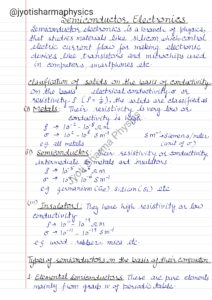 @jyotisharmaphysics
Semiconductor Electronics
Semiconductor electronics is a branch of physics,
that studies materials like silicon which control
electric current flow for making electronic
devices like transistors and microchips used
in computers, smartphones etc
Classification of solids on the basis of conductivity
on the basis electrical conductivity σ or
resistivity the solids are classified as
(i) Metals: Their resistivity is very low or
conductivity is high
e.g all metals
(ii) Semiconductor Their resistivity or conductivity
intermediate to metals and insulators
e.g germanium (Ge) silicon (Si) etc
(iii) Insulators: They have high resistivity or low
conductivity
e.g wood, rubber, mica etc.
Types of semiconductors on the basis of their composition
1. Elemental semiconductors: These are pure elements
mainly from group IV of periodic table
Jyoti Sharma Physics